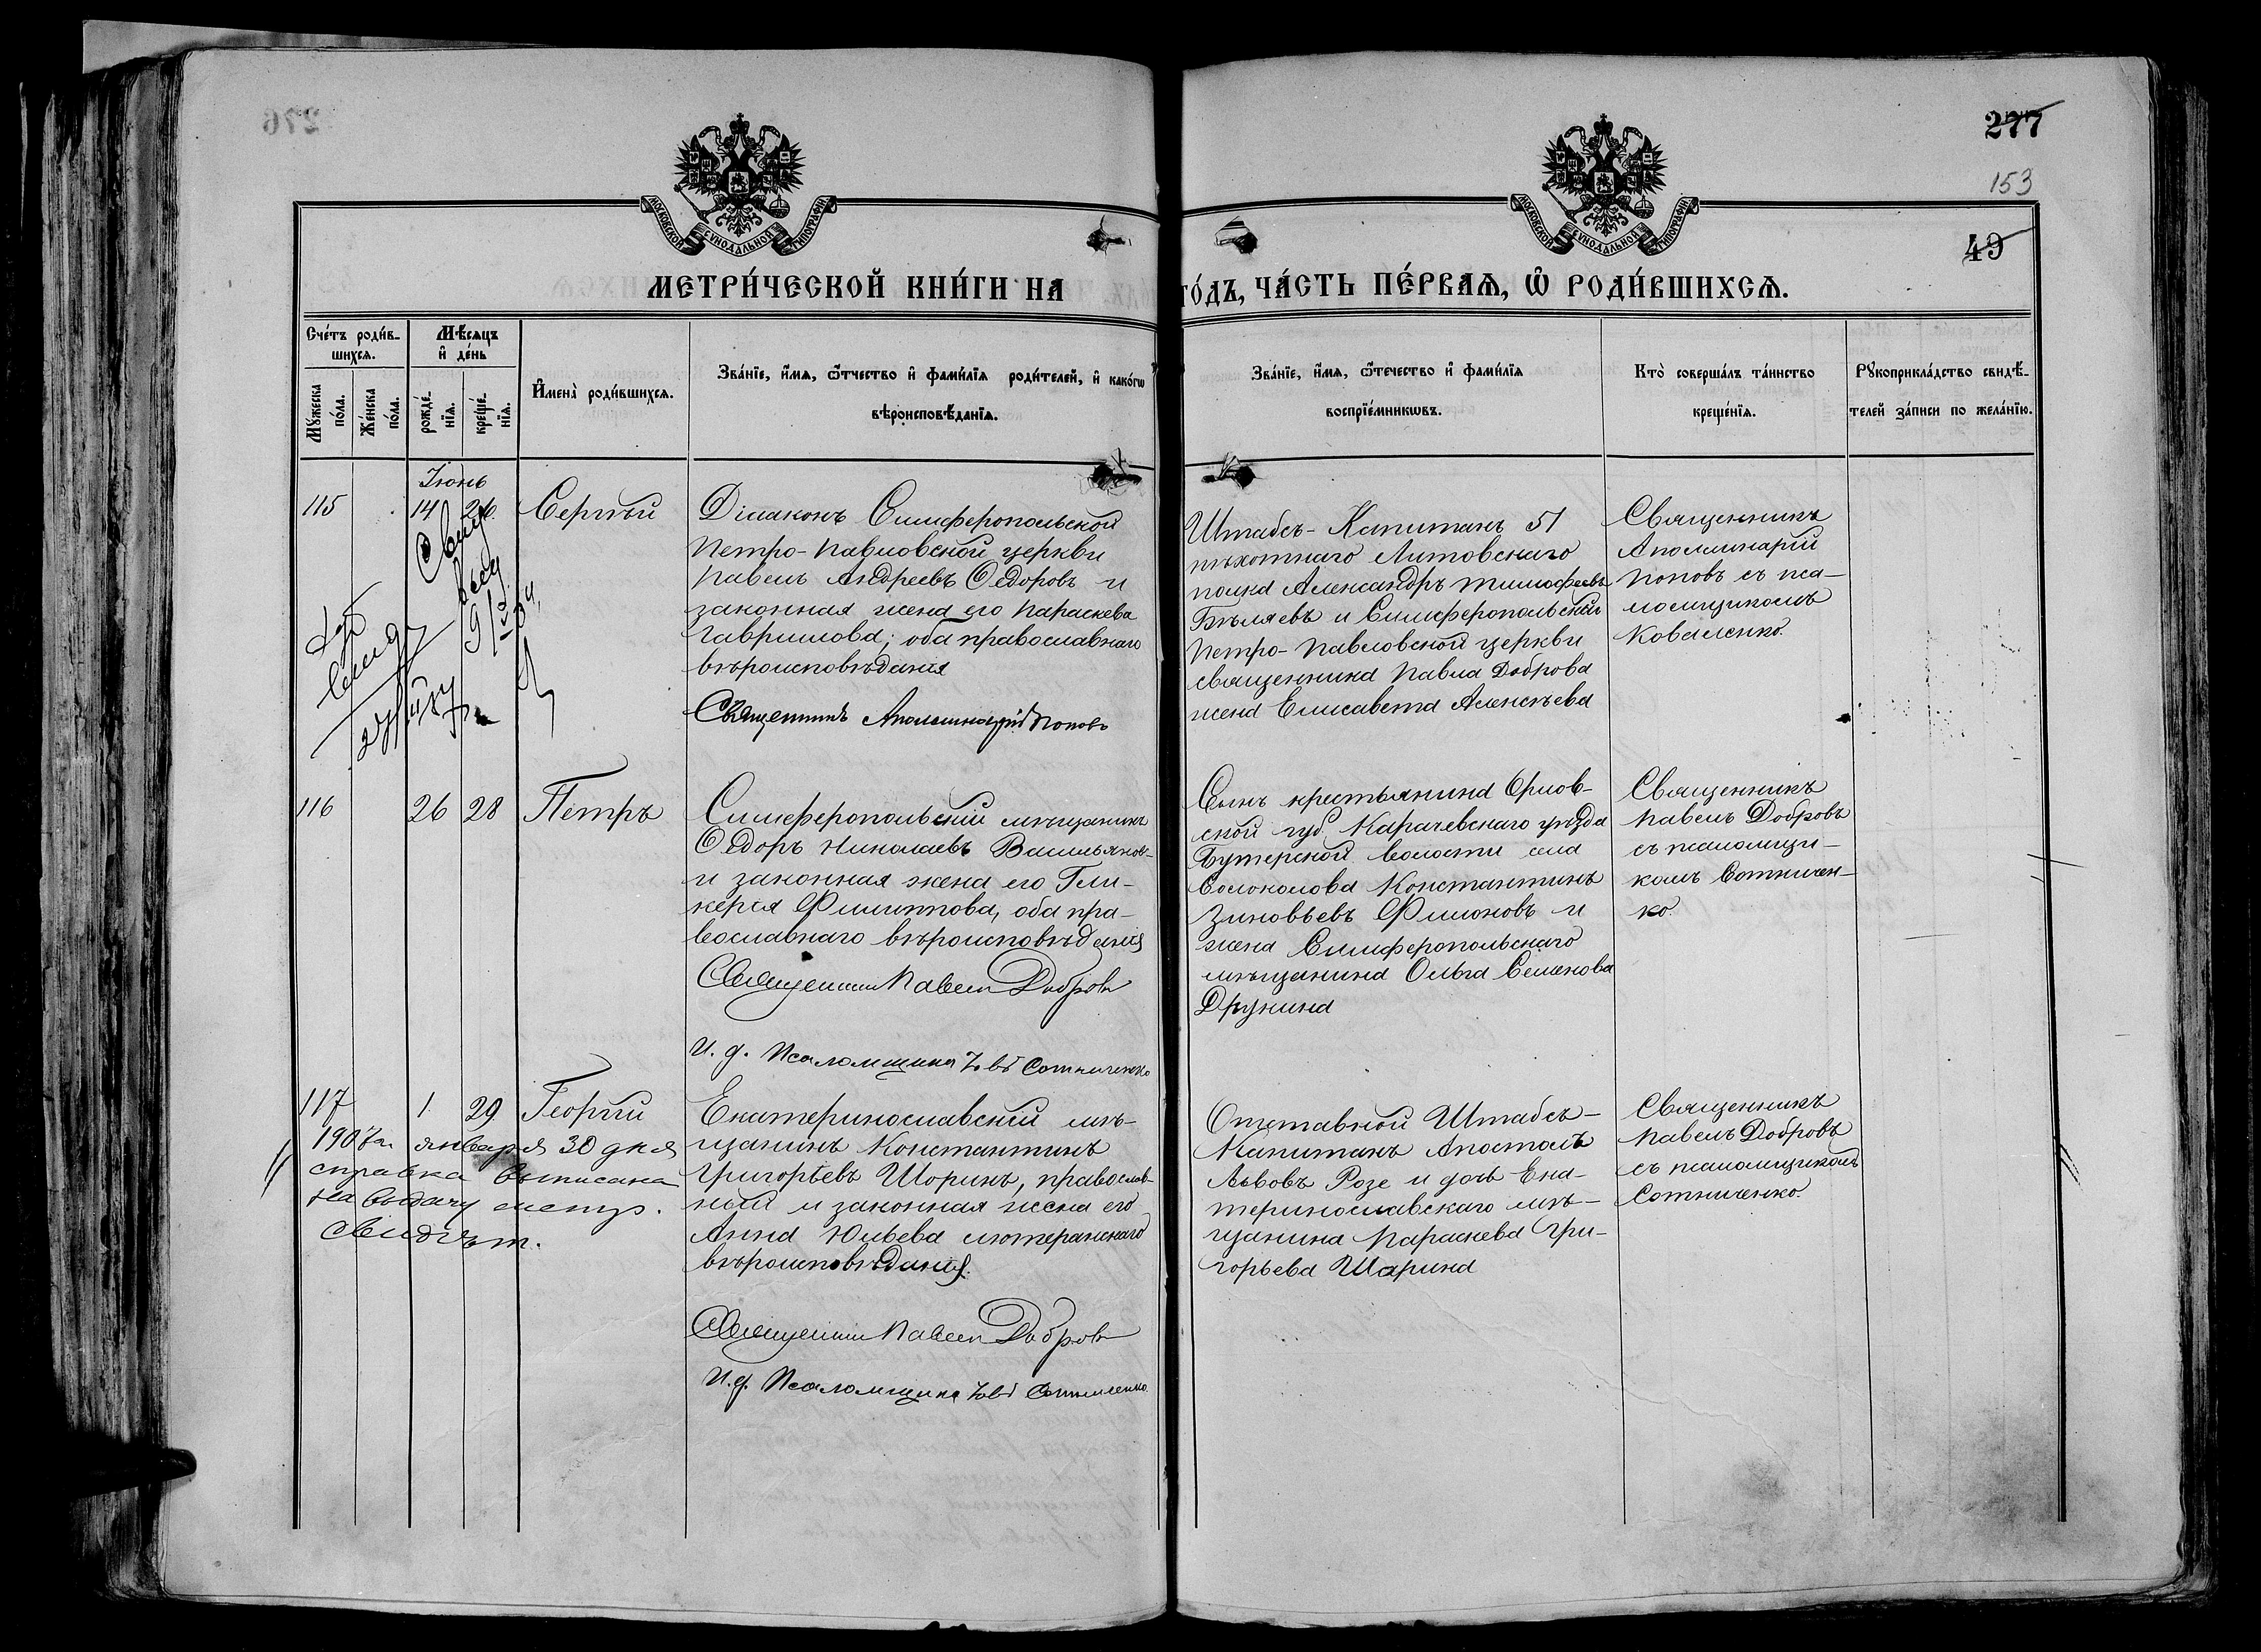 277
153
49
МОСКОВСКОЙ СѴНОДАЛЬНОЙ ТИПОГРАФІИ
МОСКОВСКОЙ СѴНОДАЛЬНОЙ ТИПОГРАФІИ
МЕТРИ́ЧЕСКОЙ КНИ́ГИ НА
ГО́ДЪ, ЧА́СТЬ ПЕ́РВАѦ, Ѽ РОДИ́ВШИХСѦ.
Сче́тъ роди́в-
шихсѧ.
Мꙋжеска по́ла.
Же́нска по́ла.
Мѣ́сѧцъ
и҆ де́нь
рожде́-
нїѧ.
креще́-
нїѧ.
И҆мена̀ роди́вшихсѧ.
Зва́нїе, и҆́мѧ, ѻ҆́тчество и҆ фами́лїѧ роди́телей, и҆ како́гѡ
вѣроисповѣ́данїѧ.
Зва́нїе, и҆́мѧ, ѻ҆́течество и҆ фами́лїѧ
воспрїе́мникѡвъ.
Кто̀ соверша́лъ та́инство
креще́нїѧ.
Рꙋкоприкла́дство свидѣ́-
телей за́писи по жела́нїю.
Іюнь
115
14
26
Сергѣй
Діаконъ Симферопольской
Петро-Павловской церкви
Павелъ Андреевъ Ѳедоровъ и
законная жена его Параскева
Гаврилова; оба православнаго
вѣроисповѣданія
Священникъ Аполлинарій Поповъ
Штабсъ-Капитанъ 51
пѣхотнаго Литовскаго
полка Александръ Тимофеевъ
Бѣляевъ и Симферопольской
Петро-Павловской церкви
священника Павла Доброва
жена Елисавета Алексѣева
Священникъ
Аполлинарій
Поповъ съ пса-
ломщикомъ
Коваленко.
116
26
28
Петръ
Симферопольскій мѣщанинъ
Ѳедоръ Николаевъ Васильянов-
и законная жена его Гли-
керія Филиппова, оба пра-
вославнаго вѣроисповѣданія
Священникъ Павелъ Добровъ
И. д. Псаломщика Іовъ Сотниченко
Сынъ крестьянина Орлов-
ской губ. Карачевскаго уѣзда
Бутерской волости села
Волоколова Константинъ
Зиновьевъ Филоновъ и
жена Симферопольскаго
мѣщанина Ольга Семенова
Дружина
Священникъ
Павелъ Добровъ
съ псаломщи-
комъ Сотничен-
ко.
117
1
29
Георгій
1907 г. января 30 дня
справка выписана
на выдачу метр.
свидѣт.
Екатеринославскій мѣ-
щанинъ Константинъ
Григорьевъ Шоринъ, православ-
ный и законная жена его
Анна Юльева лютеранскаго
вѣроисповѣданія.
Священникъ Павелъ Добровъ
И. д. Псаломщика Іовъ Сотниченко.
Отставной Штабсъ-
Капитанъ Апостолъ
Львовъ Розе и дочь Ека-
теринославскаго мѣ-
щанина Параскева Гри-
горьева Шарина
Священникъ
Павелъ Добровъ
съ псаломщикомъ
Сотниченко.